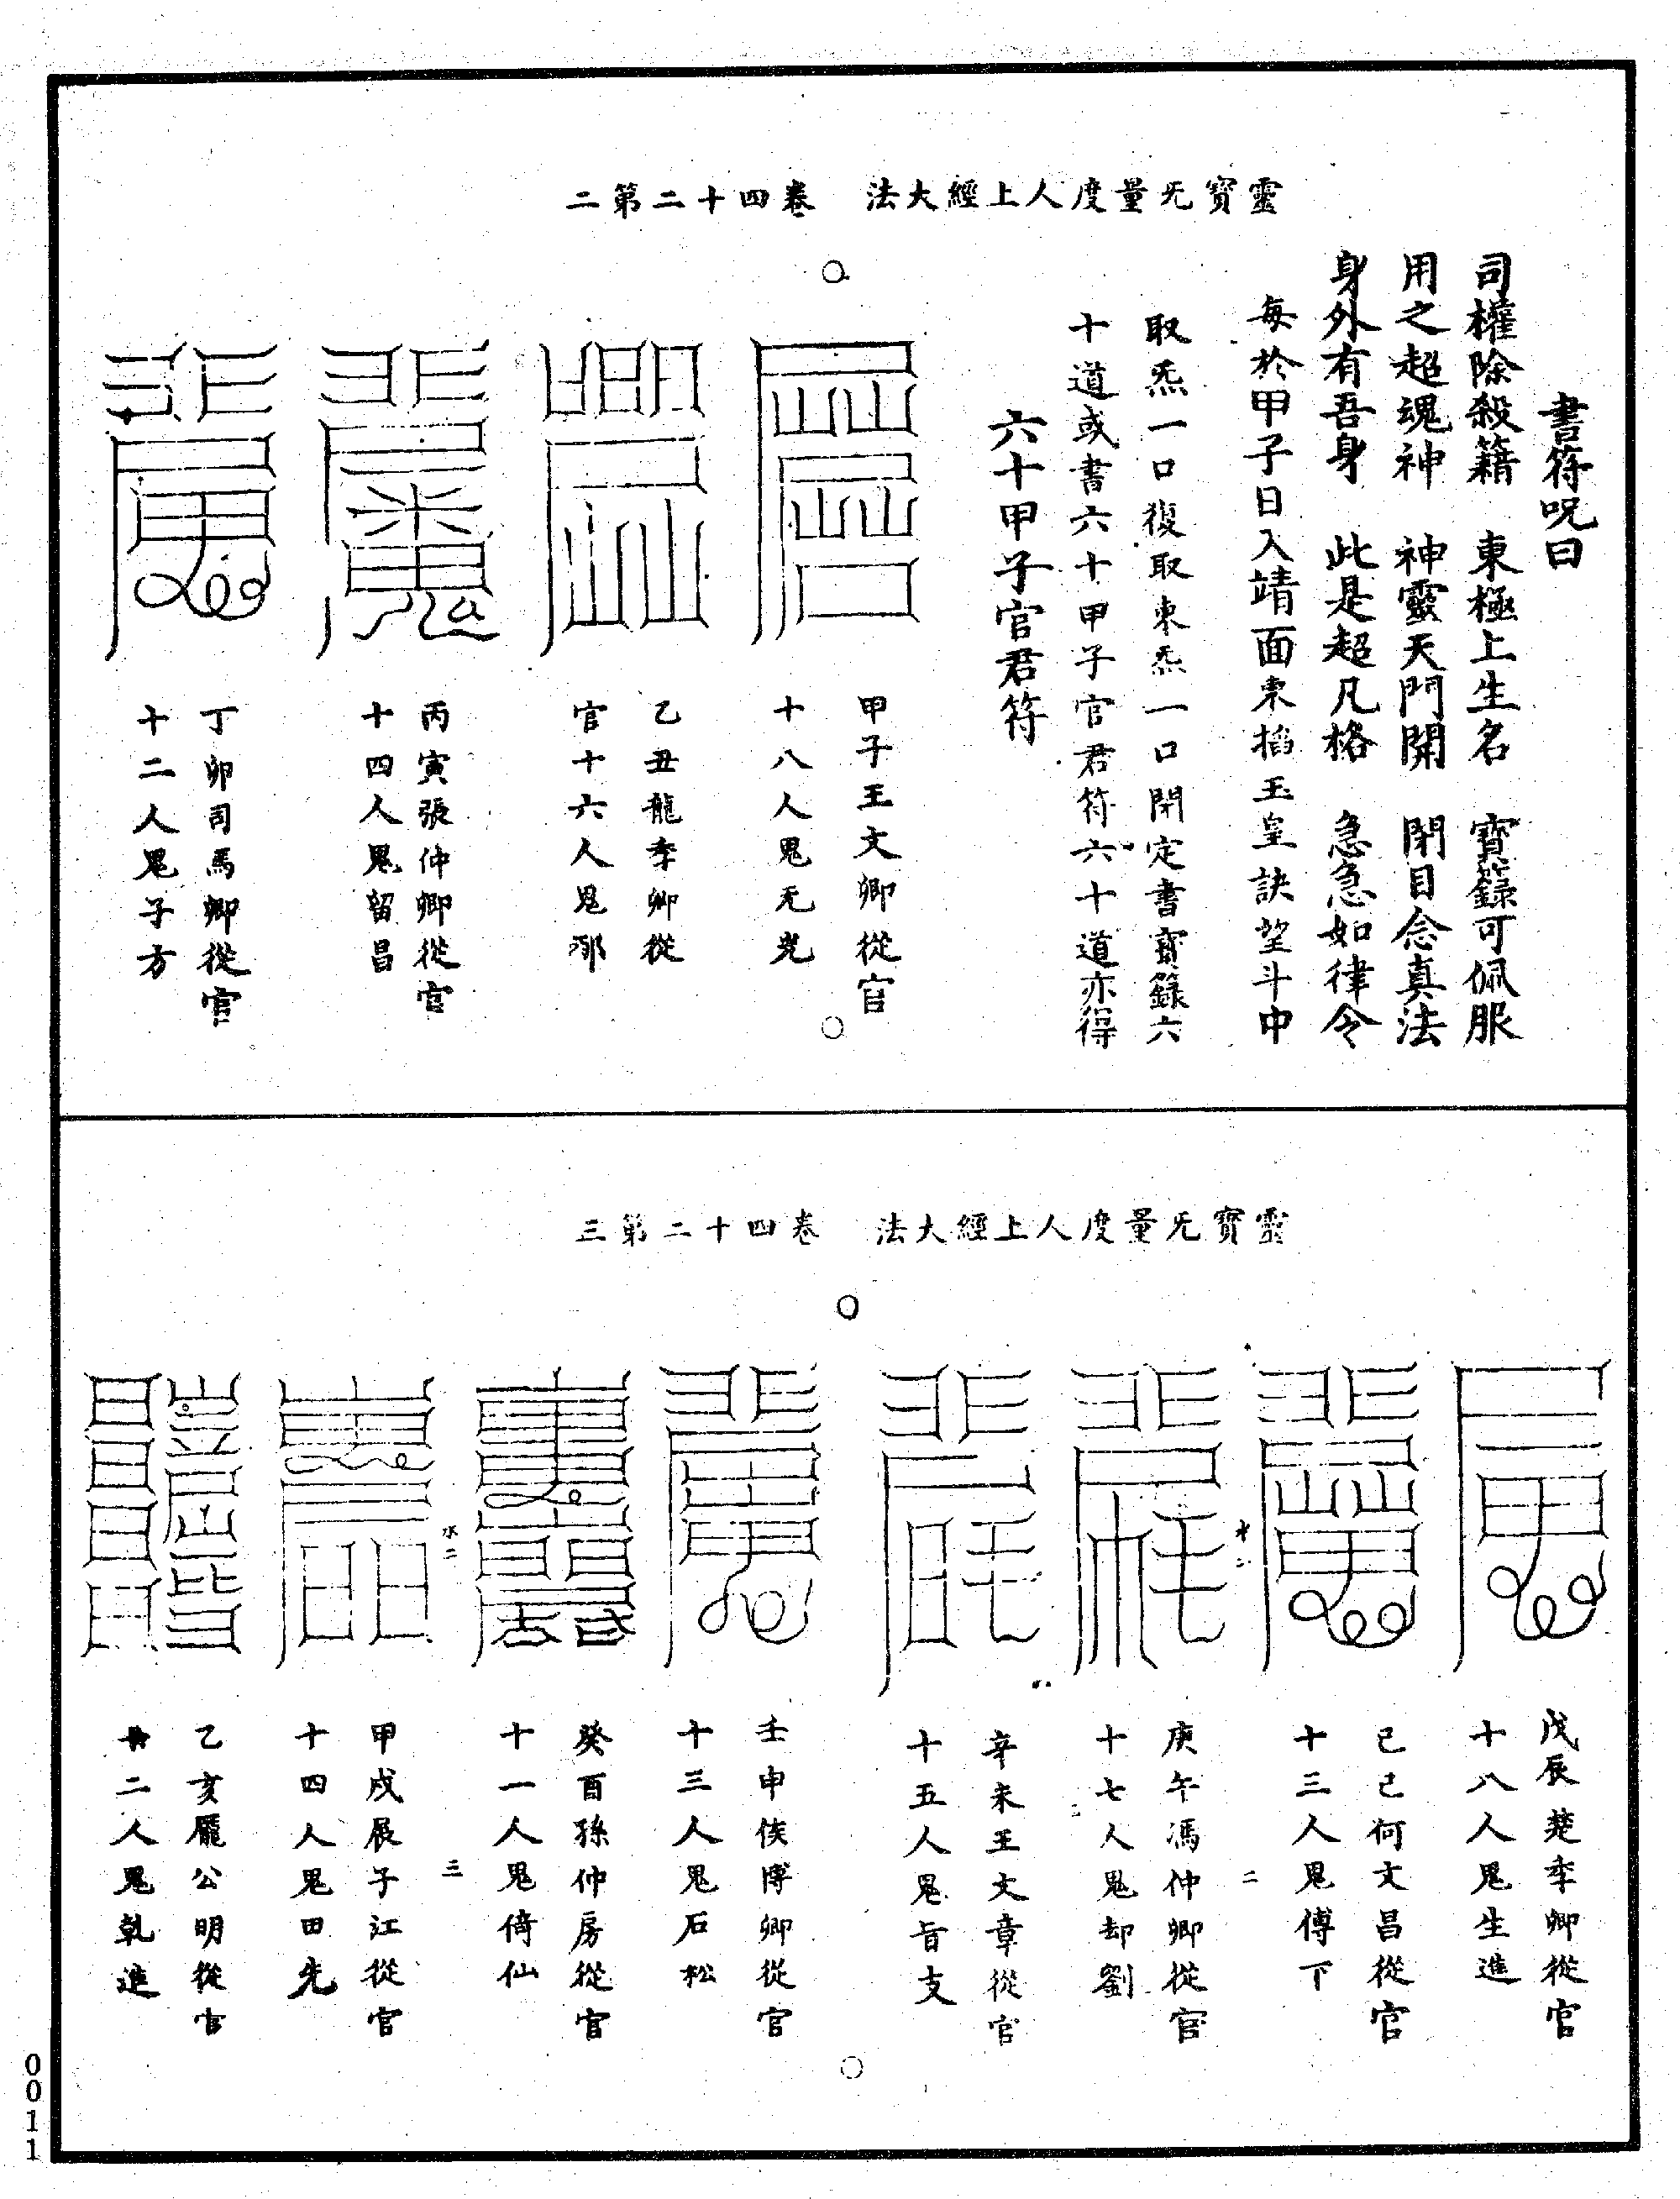 靈寶无量度人上經大法　卷四十二第二
書符呪曰
司權除殺籍　東極上生名　寶籙可佩服
用之超魂神　神靈天門開　閉目念真法
身外有吾身　此是超凡格　急急如律令
每於甲子日入靖面東掐玉皇訣望斗中
取炁一口復取東炁一口閉定書寶籙六
十道或書六十甲子官君符六十道亦得
六十甲子官君符
甲子王文卿從官
十八人鬼无
乙丑龍季卿從
官十六人鬼
丙寅張仲卿從官
十四人鬼留昌
丁卯司馬卿從官
十二人鬼子方
靈寶无量度人上經大法　卷四十二第三
戊辰楚季卿從官
十八人鬼生進
己巳何文昌從官
十三人鬼傅下
二
庚午馮仲卿從官
十七人鬼却劉
辛未王文章從官
十五人鬼旨支
壬申侯博卿從官
十三人鬼石松
癸酉孫仲房從官
十一人鬼倚仙
水二
三
甲戌展子江從官
十四人鬼田先
乙亥龐公明從官
二人鬼乹進
0011